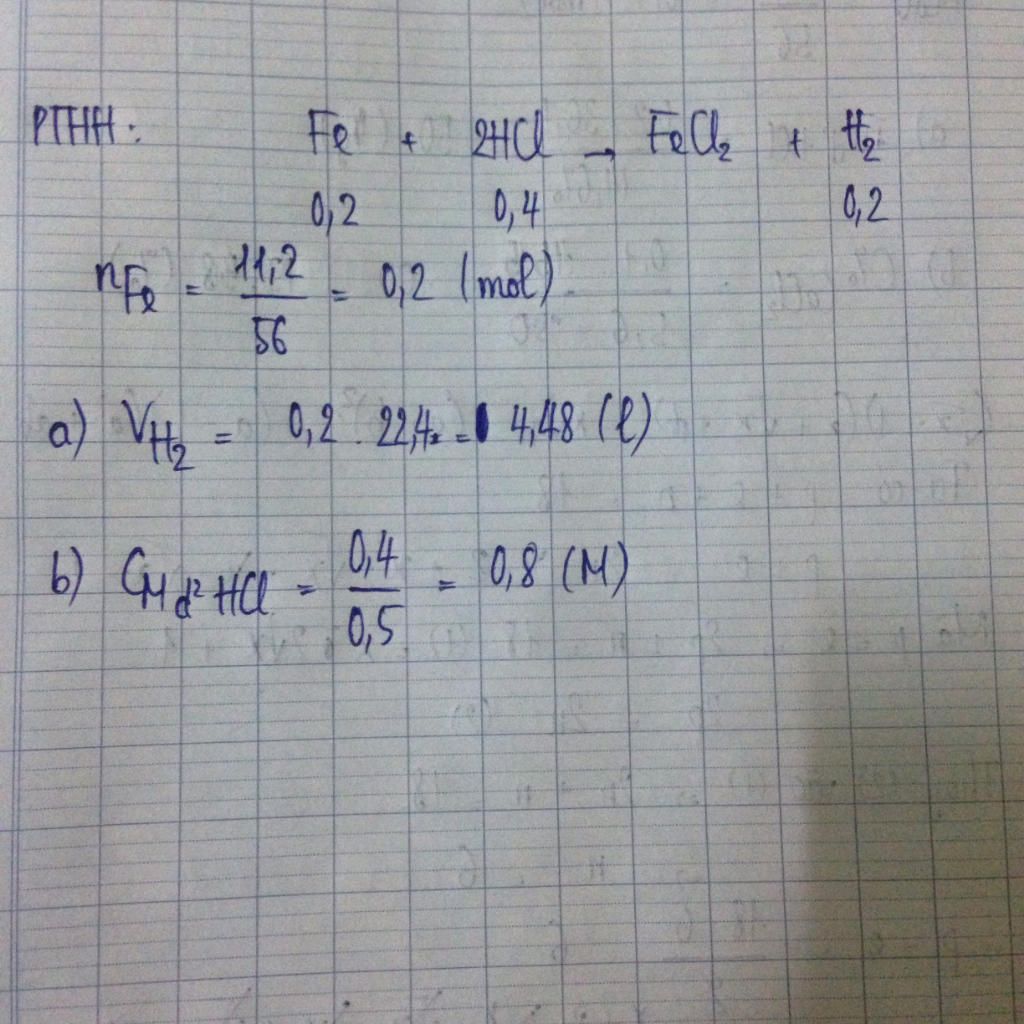 PTHH: Fe + 2HCl → FeCl₂ + H₂
0,2 0,4 0,2
nFe = 11,2/56 = 0,2 (mol)
a) VH₂ = 0,2 . 22,4 = 4,48 (l)
b) CM d² HCl = 0,4/0,5 = 0,8 (M)